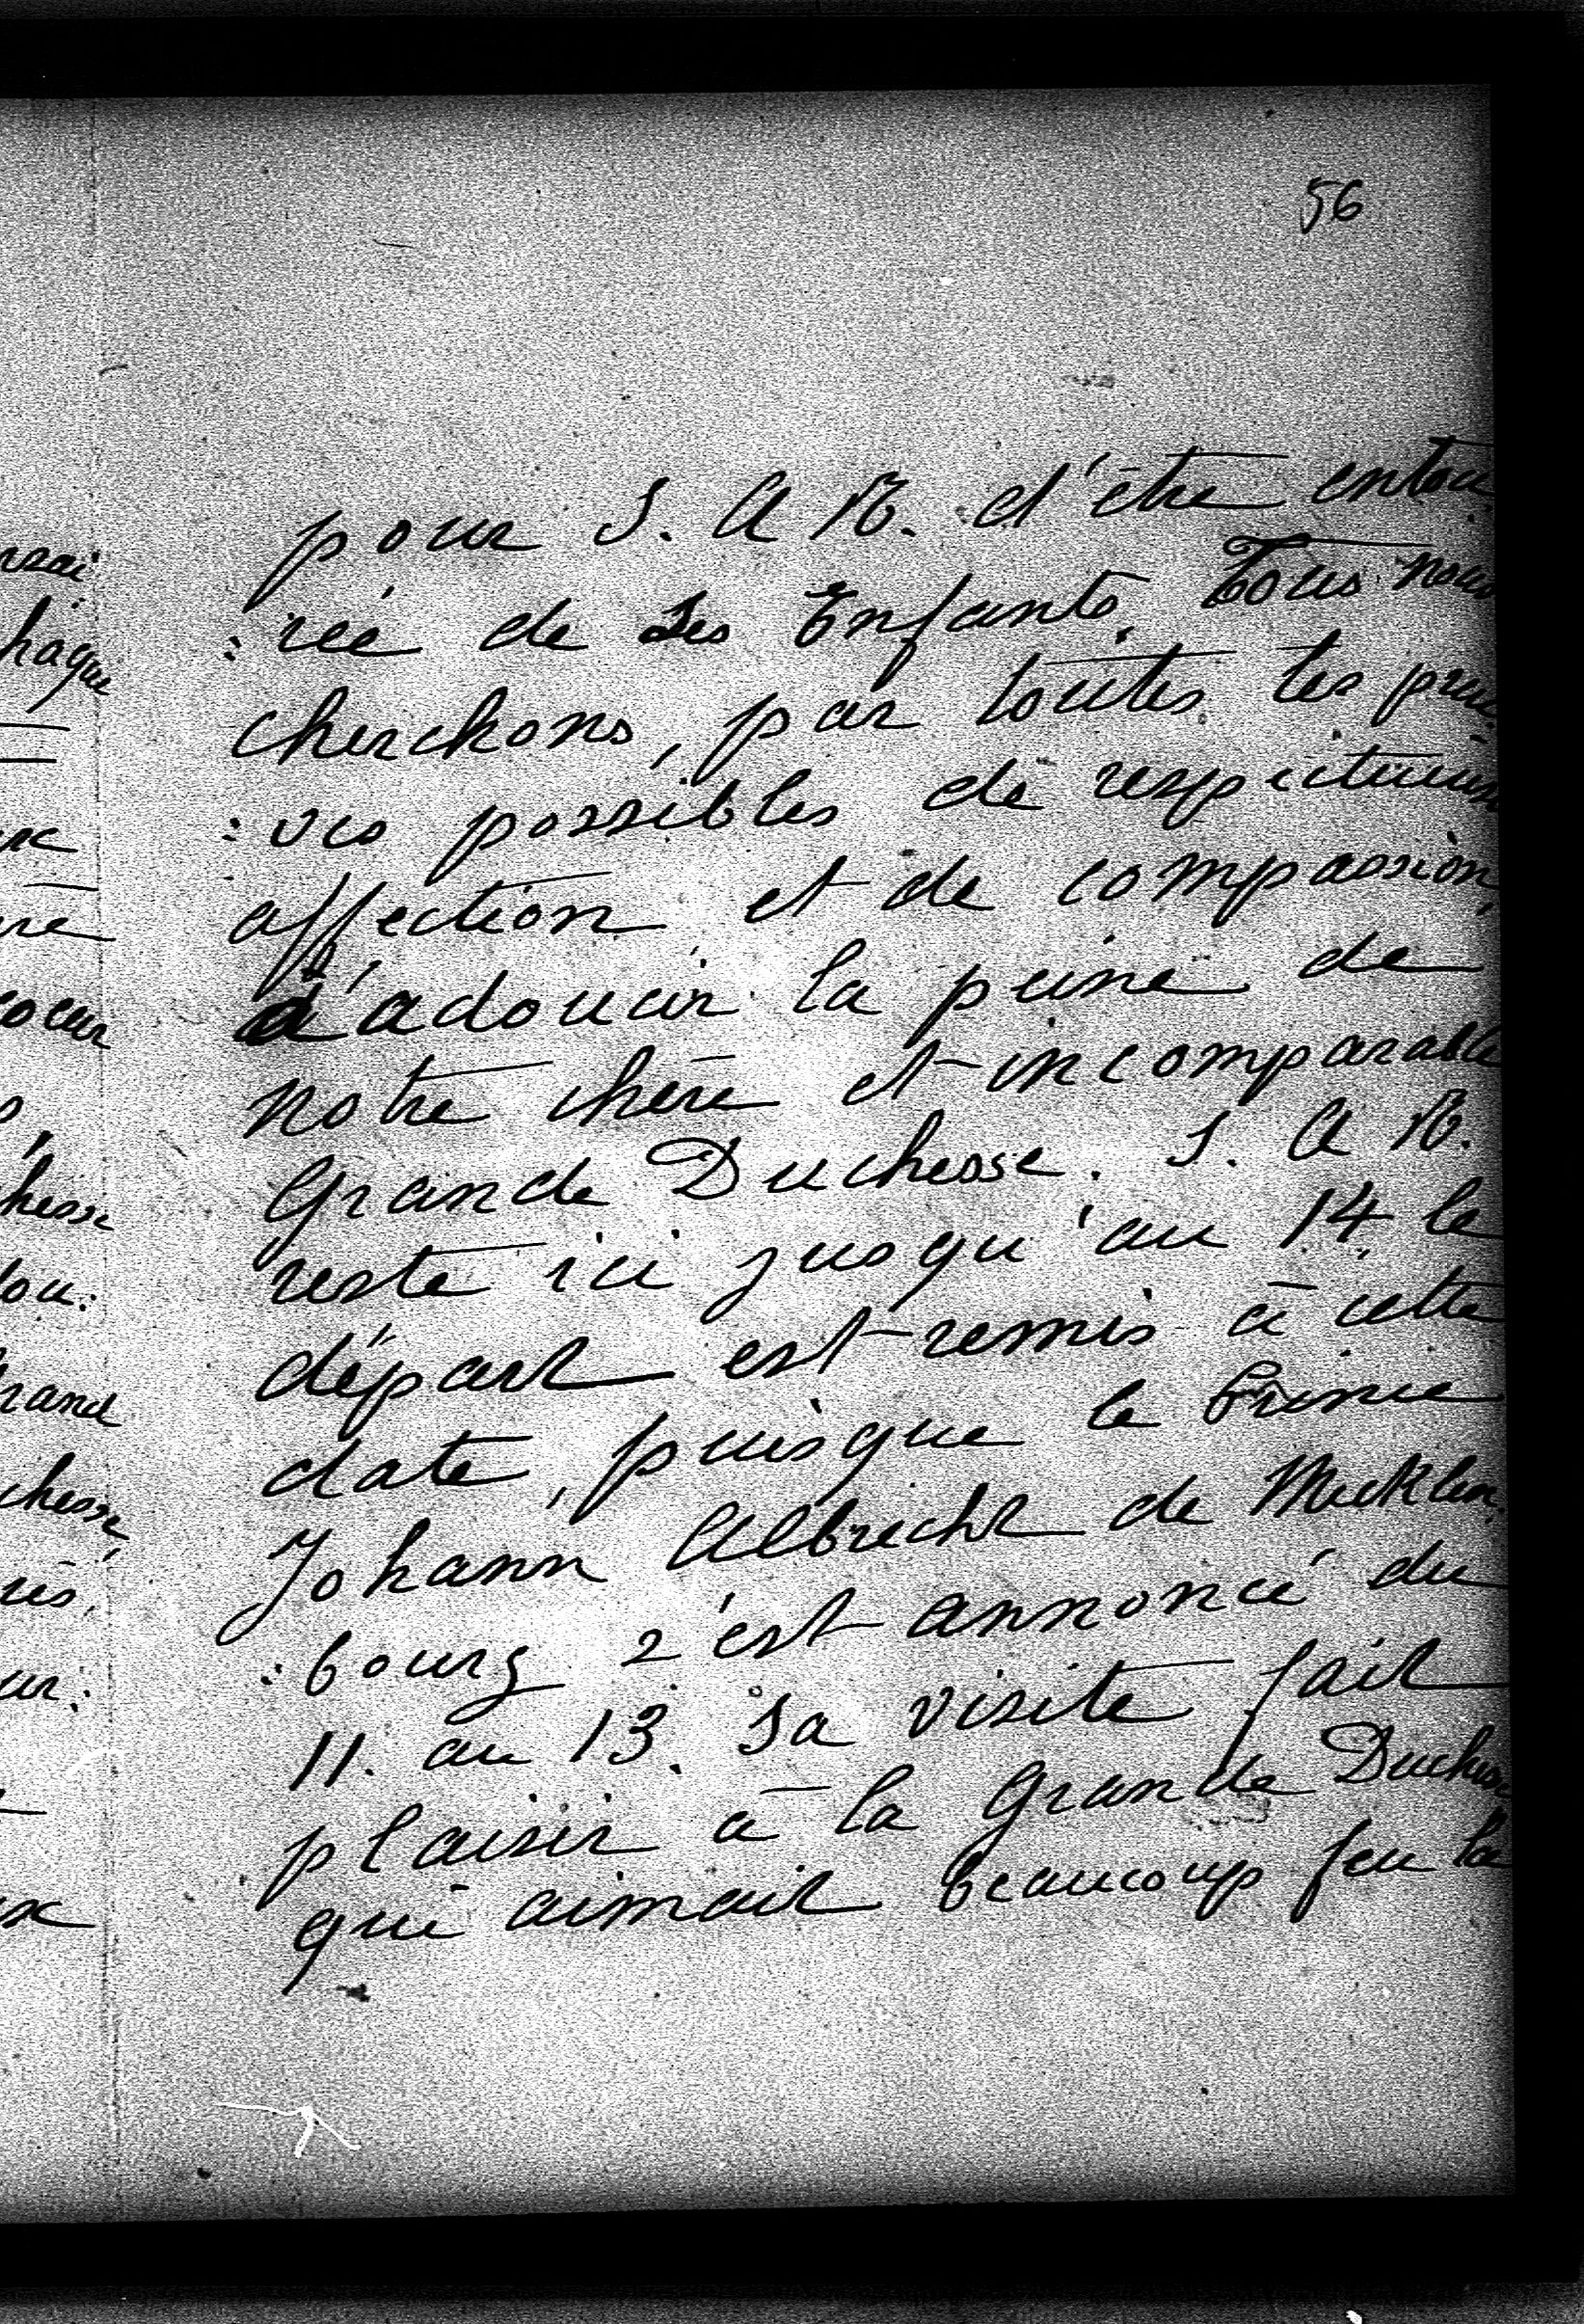 56
pour S. A R. d'être entou:
:rée de Ses Enfants. Tous nous
cherchons, par toutes les preu:
:ves possibles de respectueuse
affection et de compassion,
d'adoucir la peine de
notre chère et incomparable
Grande Duchesse. S. A R.
reste ici jusqu'au 14 le
départ est remis à cette
date, puisque le Prince
Johann Albrecht de Mecklen:
:bourg s'est annoncé du
11. au 13. Sa visite fait
plaisir à la Grande Duchesse
qui aimait beaucoup feu la